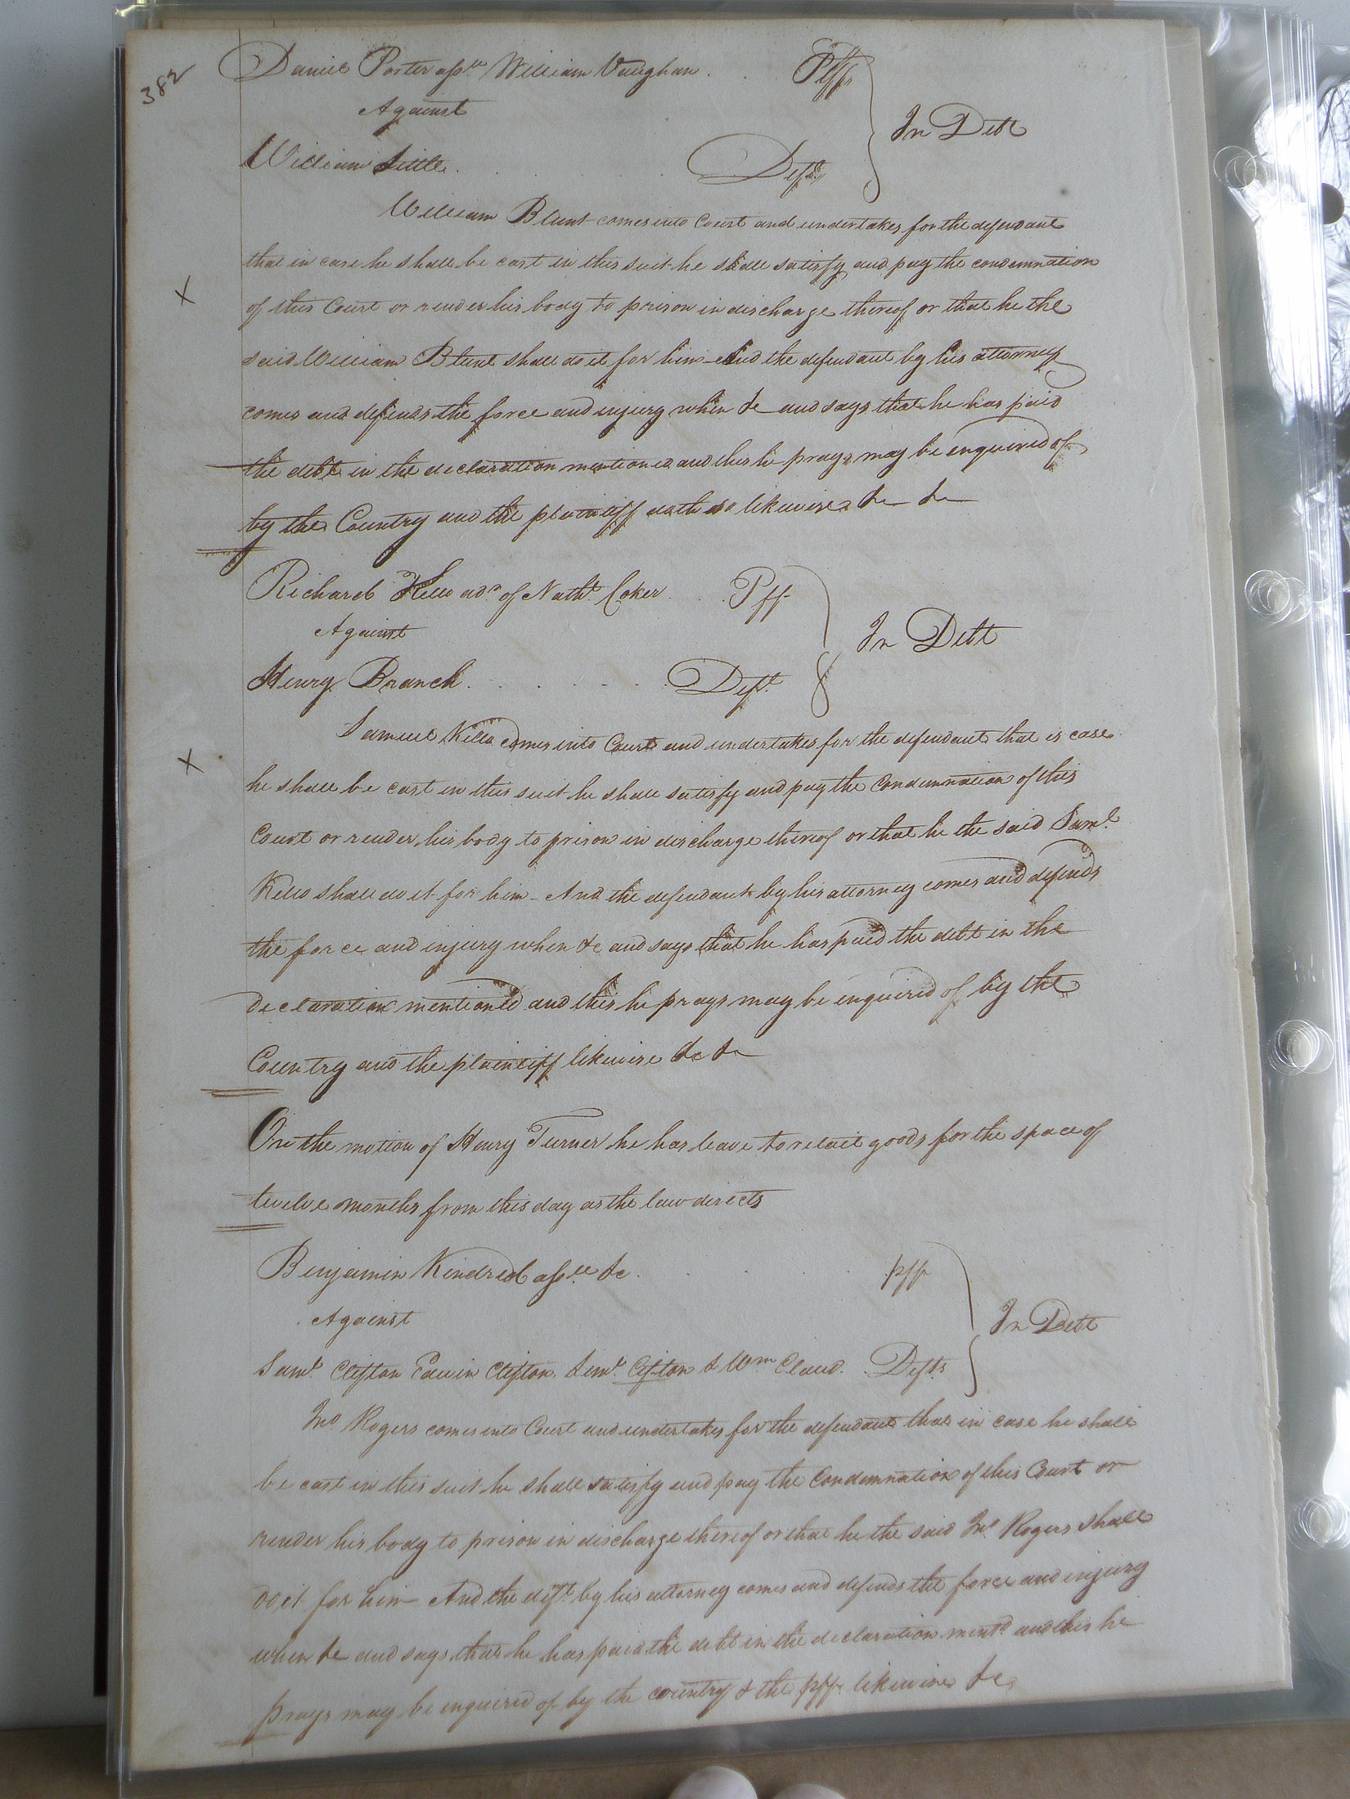 382
Daniel Porter assee William Vaughan . . Plff
Against
In Debt
William Little . . . Deft
William Blunt comes into Court and undertakes for the defendant
that in case he shall be cast in this suit he shall satisfy and pay the condemnation
X
of this Court or render his body to prison in discharge thereof or that he the
said William Blunt shall do it for him And the defendant by his attorney
comes and defends the force and injury when &c and says that he has paid
the debt in the declaration mentioned and this he prays may be enquired of
by the Country and the plaintiff doth so likewise &c &c
Richard Kello adr of Nathl Coker . . Pff
Against
In Debt
Henry Branch . . . . . . Deft
Samuel Kello comes into Court and undertakes for the defendant that is case
X
he shall be cast in this suit he shall satisfy and pay the Condemnation of this
Court or render his body to prison in discharge thereof or that he the said Saml
Kello shall do it for him - And the defendant by his attorney comes and defends
the force and injury when &c and says that he has paid the debt in the
declaration mentioned and this he prays may be enquired of by the
Country and the plaintiff likewise &c &c
On the motion of Henry Turner he has leave to retail goods for the space of
twelve months from this day as the law directs
Benjamin Kindred assee &c . . . . pff
Against
In Debt
Saml Clifton Edwin Clifton Clifton & Wm Claud . Defts
Jno Rogers comes into Court and undertakes for the defendant that in case he shall
be cast in this suit he shall satisfy and pay the Condemnation of this Court or
render his body to prison in discharge thereof or that he the said Jno Rogers shall
do it for him And the deft by his attorney comes and defends the force and injury
when &c and says that he has paid the debt in the declaration mentd and this he
prays may be enquired of by the country & the pff likewise &c